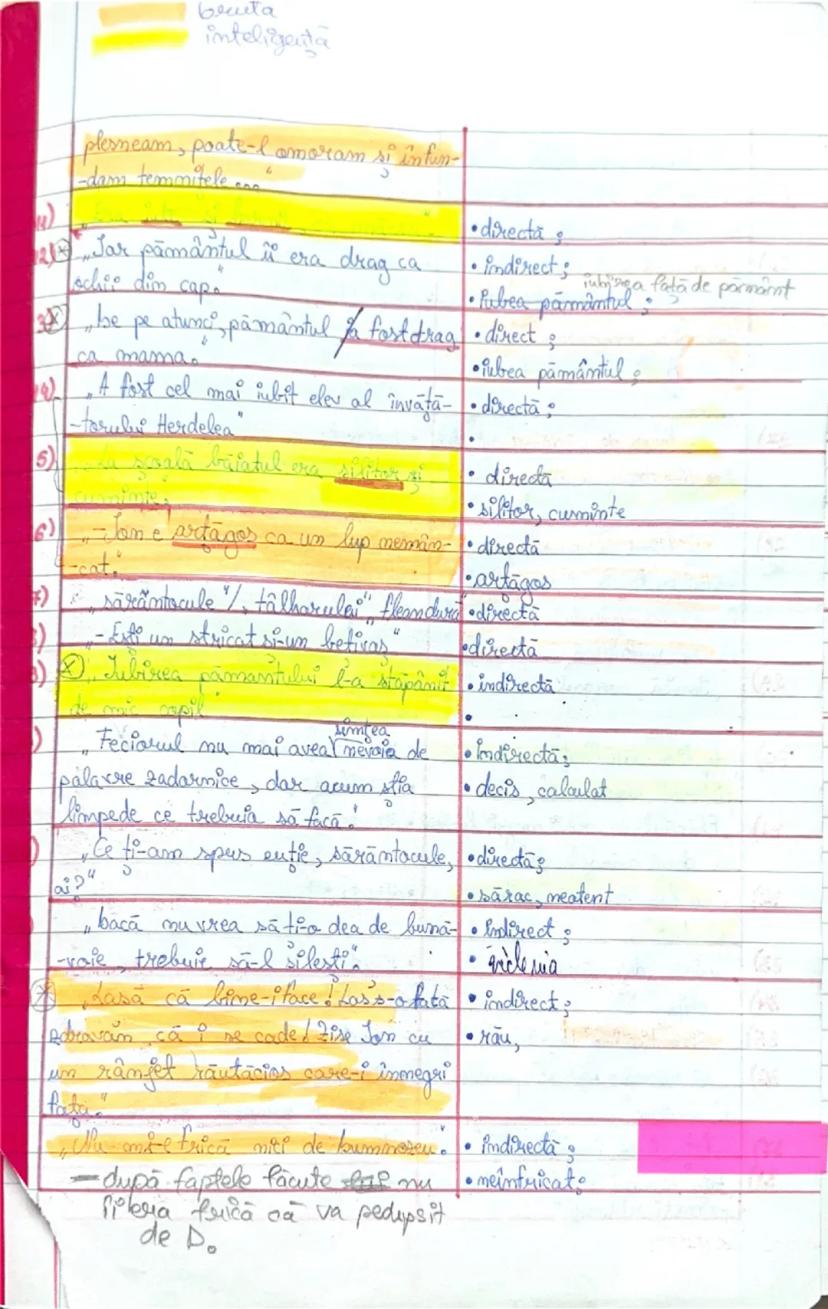 bruta
inteligență
plesneam, poate-l omoram și înfun-
-dam temnițele..."
11)
• directă;
12) „Iar pământul îi era drag ca
ochii din cap."
• indirect;
iubirea față de pământ
• Iubea pământul;
3) „De pe atunci, pământul îi a fost drag
ca mama."
• direct;
• iubea pământul;
14) „A fost cel mai iubit elev al învăță-
-torului Herdelea"
• directă;
•
5) La școală băiatul era silitor și
cuminte;
• directă
• silitor, cuminte
6) „-Ion e arțăgos ca un lup nemân-
-cat."
• directă
• arțăgos
7) „sărăntocule"/„ tâlharului" fleandură
• directă
„-Ești un stricat si-un betivaș"
• directă
„Iubirea pământului l-a stăpânit
de mic copil"
• indirectă
•
simțea
„Feciorul nu mai avea nevoie de
palavre zadarnice, dar acum știa
limpede ce trebuia să facă."
• Indirectă;
• decis, calculat
„Ce ți-am spus eu ție, sărăntocule,
ai?"
• directă;
• sărac, neatent
„Dacă nu vrea să ți-o dea de bună-
-voie, trebuie să-l silești".
• Indirect;
• viclenia
„Lasă că bine-i face! Las's-o bată
zdravăn, că i se cade! Zise Ion cu
un rânjet răutăcios care-i înnegri
fața."
• indirect;
• rău,
„Nu mi-e frică nici de Dumnezeu".
• indirectă;
• neînfricat;
— după faptele făcute nu
îi era frică că va pedepsit
de D.